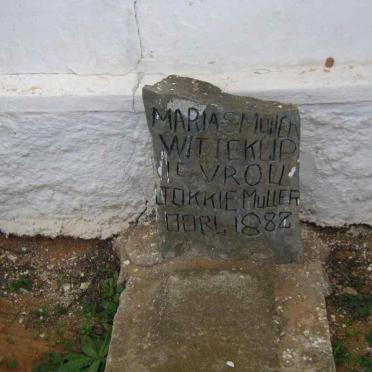 MARIA S MULLER
WITTEKLIP
1E VROU
JOKKIE MULLER
OORL 1882